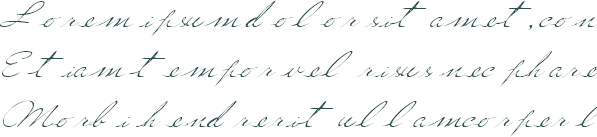 Lorem ipsum dolor sit amet, con
Etiam tempor vel risus nec phare
Morbi hendrerit ullamcorper l